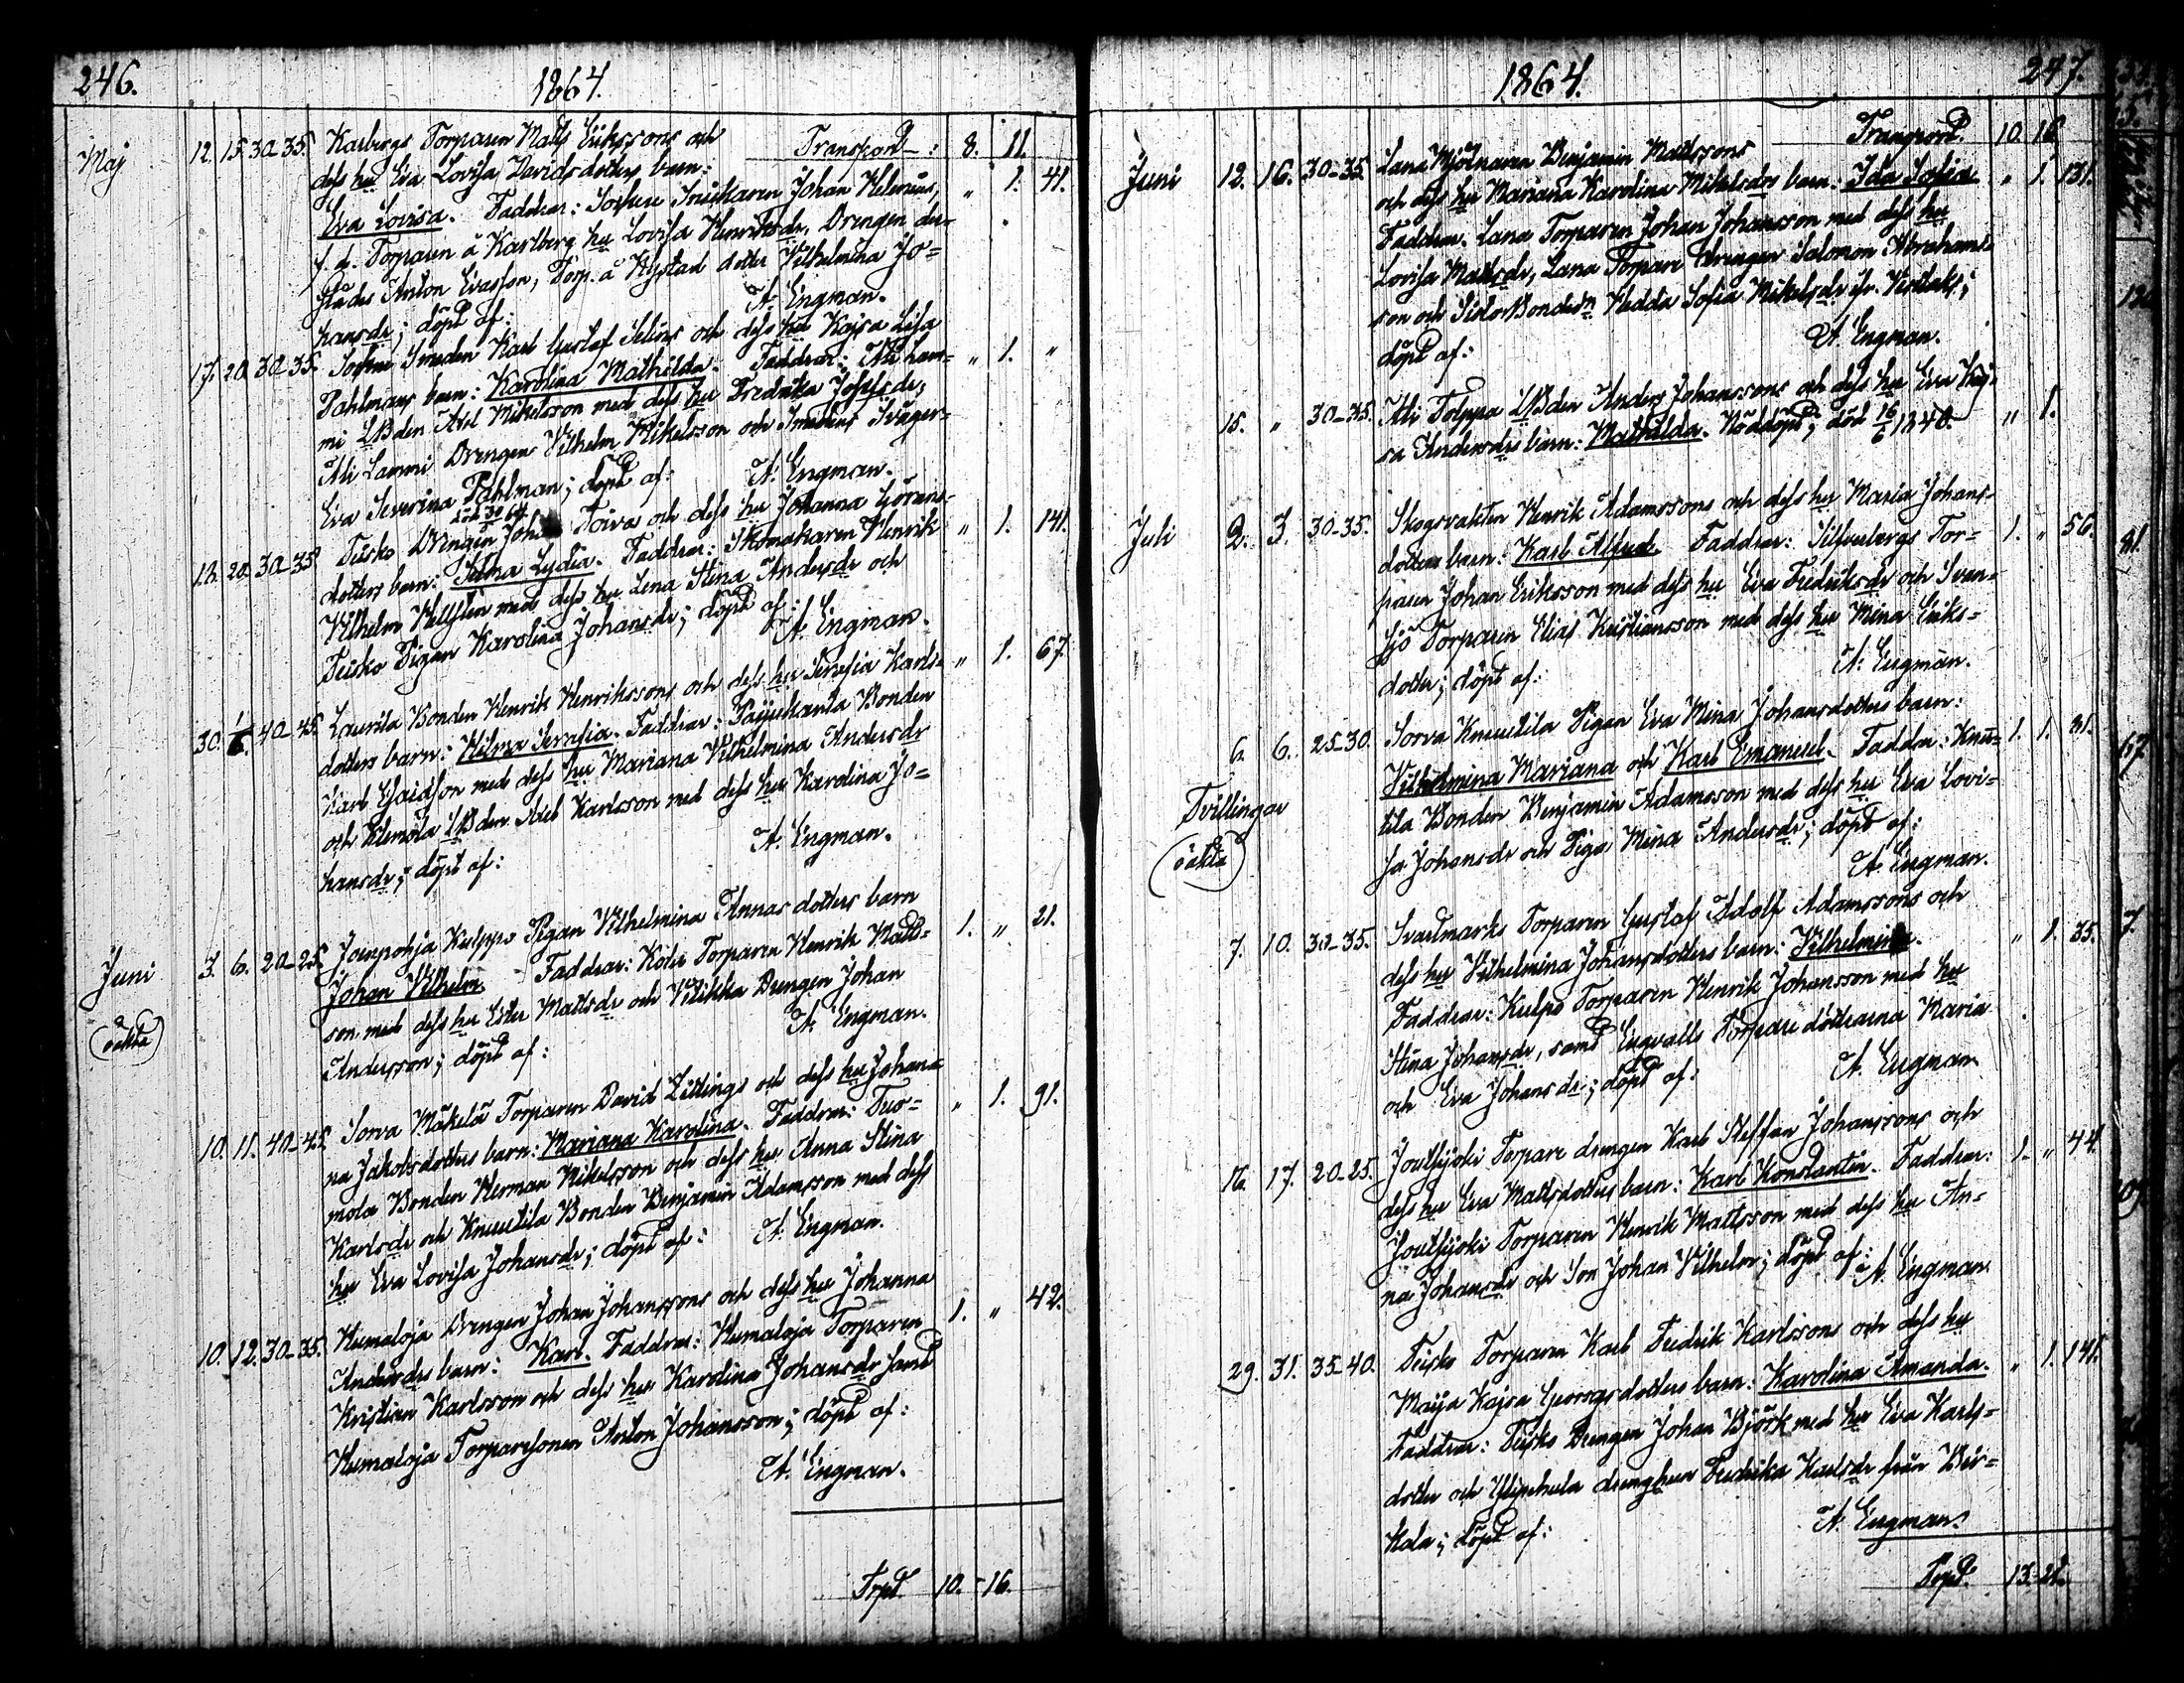 246.
1864.
Maj
Transport: 8. 11.
12. 15. 30-35. Karbergs Torparen Matts Erikssons och
dess hu Eva Lovisa Davidsdotters barn: „ 1. 41.
Eva Lovisa. Faddrar: Johan
f. d. Torparen å Karlberg hu Lovisa Henriksdr, Drengen der-
städes Anton Evasson, Torp. å Nystad dotter Vilhelmina Jo=
hansdr; döpt af: A. Engman.
17. 20. 30-35. Smeden Karl Gustaf och dess hu Kajsa Lisa
Pahlmans barn: Karolina Mathilda. Faddrar: Ali Lam- „ 1. „
mi LBden Axel Mikelsson med dess hu Fredrika Josefsdr,
Ali Lammi Drengen Vilhelm Mikelsson och Smedens Sväger-
Eva Severina Pahlman; döpt af: A. Engman.
12. 20. 30-35. Teisko Drengen Johan Toiva och dess hu Johanna Görans-
dotters barn: Selma Lydia. Faddrar: Skomakaren Henrik „ 1. 141.
Vilhelm Hellsten med dess hu Lena Stina Andersdr och
Teisko Pigan Karolina Johansdr; döpt af:
A. Engman.
30. 1/6. 40-45. Laurila Bonden Henrik Henrikssons och dess hu Serafia Karls- „ 1. 67.
dotters barn: Hilma Serafia. Faddrar: Bonden
Karl Esaiasson med dess hu Mariana Vilhelmina Andersdr
och Klemola LBden Axel Karlsson med dess hu Karolina Jo=
hansdr; döpt af: A. Engman.
Juni
oäkta
3. 6. 20-25. Joenpohja Kulppo Pigan Vilhelmina Annas dotters barn 1. „ 21.
Johan Vilhelm. Faddrar: Torparen Henrik Matts-
son med dess hu Ester Mattsdr och Drengen Johan
Andersson; döpt af: A. Engman.
10. 11. 40-45. Sorva Mäkelä Torparen David Littings och dess hu Johan-
na Jakobsdotters barn: Mariana Karolina. Faddrar: Tuo= „ 1. 91.
mola Bonden Herman Mikelsson och dess hu Anna Stina
Karlsdr och Knuutila Bonden Benjamin Adamsson med dess
hu Eva Lovisa Johansdr; döpt af: A. Engman.
10. 12. 30-35. Humaloja Drengen Johan Johanssons och dess hu Johanna
Andersdrs barn: Karl. Faddrar: Humaloja Torparen 1. „ 42.
Kristian Karlsson och dess hu Karolina Johansdr samt
Humaloja Torparsonen Anton Johansson; döpt af:
A. Engman.
Trpt 10. - 16.
247.
1864.
Transport. 10. 16
Juni 12. 16. 30-35. Lana Mjölnaren Benjamin Mattssons
och dess hu Mariana Karolina Mikelsdrs barn: Ida Sofia „ 1. 131.
Faddrar. Lana Torparen Johan Johansson med dess hu
Lovisa Mattsdr, Lana Torpare drengen Salomon Abrahams-
son och Bondedn Hedda Sofia Mikelsdr
döpt af: A. Engman.
15. „ 30-35. Ali Tolppa LBden Anders Johanssons och dess hu Eva Kaj-
sa Andersdrs barn: Mathilda. Nöddöpt; död 16/6 „ 1.
Juli 2. 3. 30-35. Skogsvakten Henrik Adamssons och dess hu Maria Johans-
dotters barn: Karl Alfred. Faddrar: Silfverbergs Tor= 1. „ 56.
paren Johan Eriksson med dess hu Eva Fredriksdr och Svan-
sjö Torparen Elias Kristiansson med dess hu Mina Eriks=
dotter; döpt af: A. Engman.
Tvillingar
oäkta
6. 6. 25-30. Sorva Knuutila Pigan Eva Mina Johansdotters barn:
Vilhelmina Mariana och Karl Emanuel. Faddrar: Knuu- 1. 1. 81.
tila Bonden Benjamin Adamsson med dess hu Eva Lovi-
sa Johansdr och Piga Mina Andersdr; döpt af:
A. Engman.
7. 10. 30-35. Svartmarks Torparen Gustaf Adolf Adamssons och
dess hu Vilhelmina Johansdotters barn: Vilhelmina. „ 1. 35.
Faddrar: Kulpo Torparen Henrik Johansson med hu
Stina Johansdr, samt Engvalls Torpare döttrarna Maria
och Eva Johansdr; döpt af: A. Engman
16. 17. 20-25. Joutsijoki Torpare drengen Karl Steffan Johanssons och
dess hu Eva Mattsdotters barn: Karl Konstantin. Faddrar: 1. „ 44
Joutsijoki Torparen Henrik Mattsson med dess hu An-
na Johansdr och Son Johan Vilhelm; döpt af: A. Engman
29. 31. 35-40. Teisko Torparen Karl Fredrik Karlssons och dess hu
Maija Kajsa Georgsdotters barn: Karolina Amanda. „ 1. 141.
Faddrar: Teisko Drengen Johan Björk med hu Eva Karls=
dotter och drenghun Fredrika Karlsdr från Bir=
kala; döpt af: A. Engman.
Trpt. 13. 21.